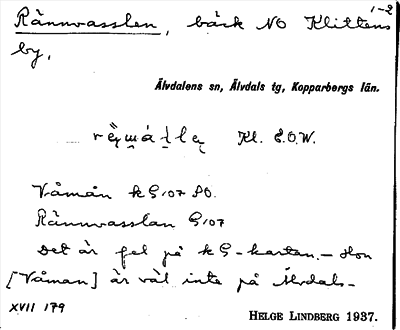 1-2
Rännvasslen, bäck NO Klittens
by.
Älvdalens sn, Älvdals tg, Kopparbergs län.
Kl. E.O.W.
Våmån k G 107 SO.
Rännvasslan G 107
Det är fel på k G-kartan. – Hon
[Våman] är väl inte på Älvdals-
XVII 179
HELGE LINDBERG 1937.